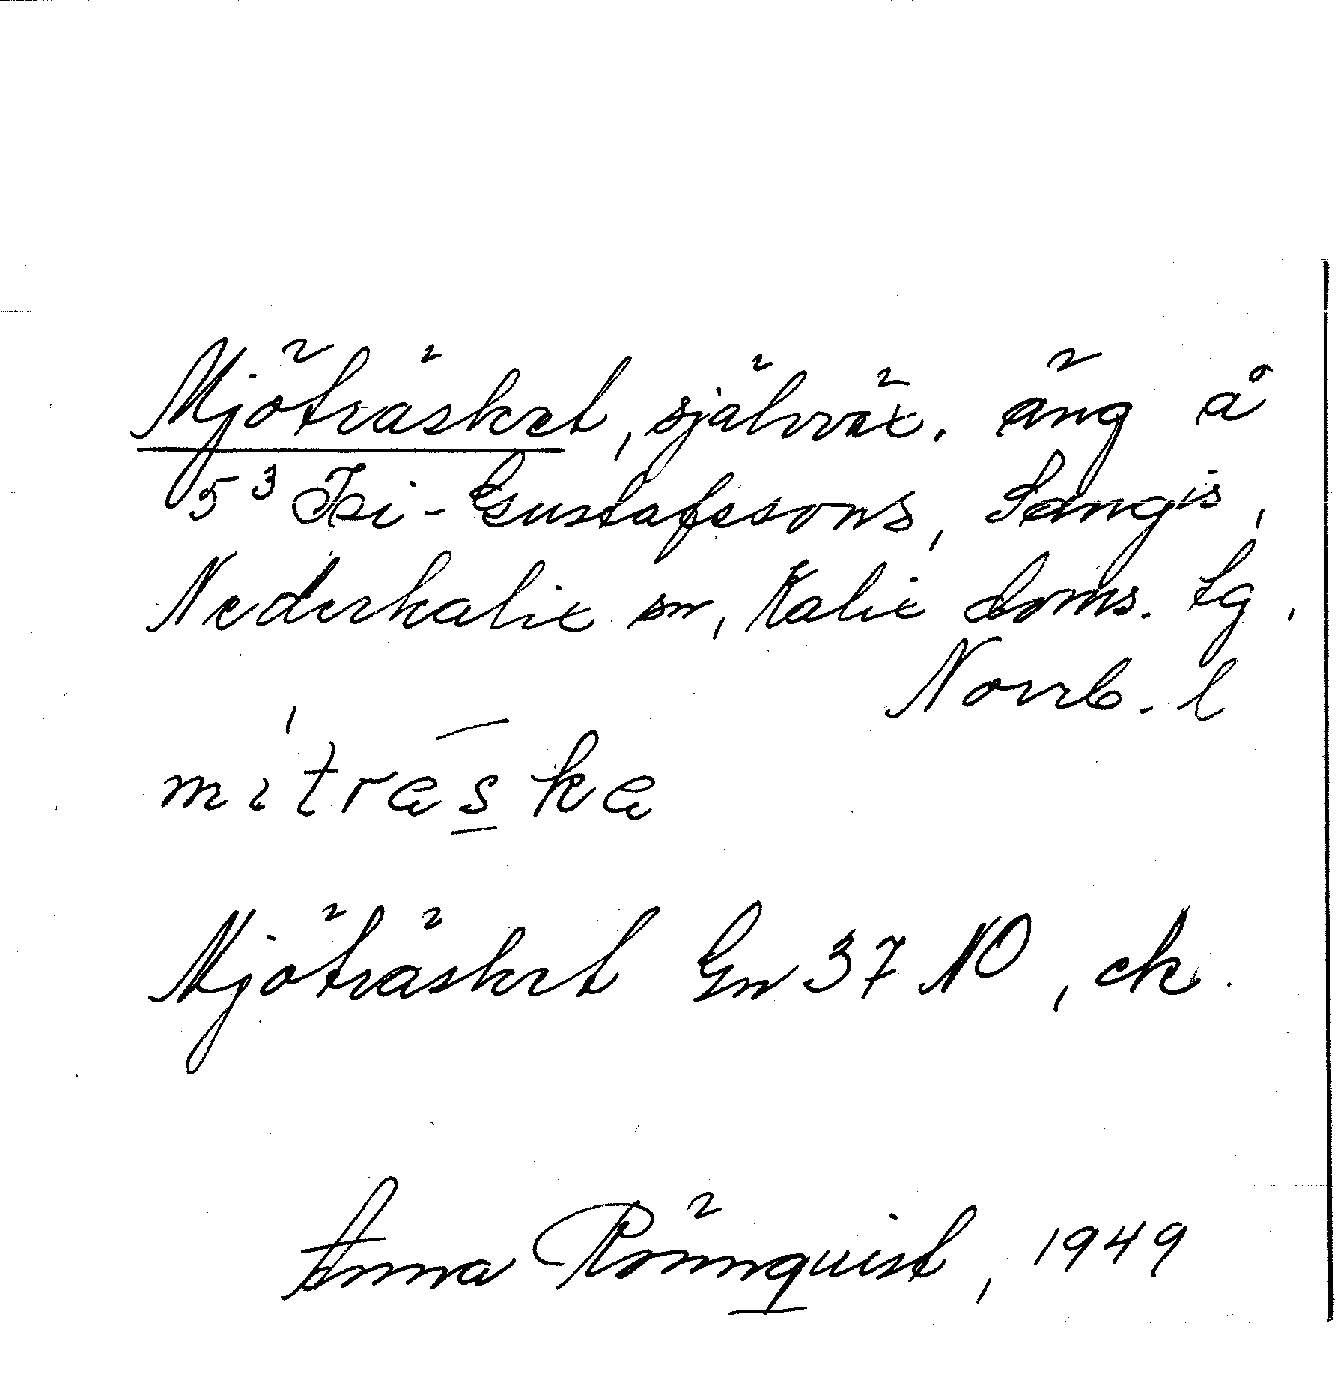 Mjöträsket, självväx. äng å
5³ Isi-Gustafssons, Sangis,
Nederkalix sn, Kalix doms. tg,
Norrb. l
mítrǣska
Mjöträsket Gn 37 NO, ek.
Anna Rönnquist, 1949